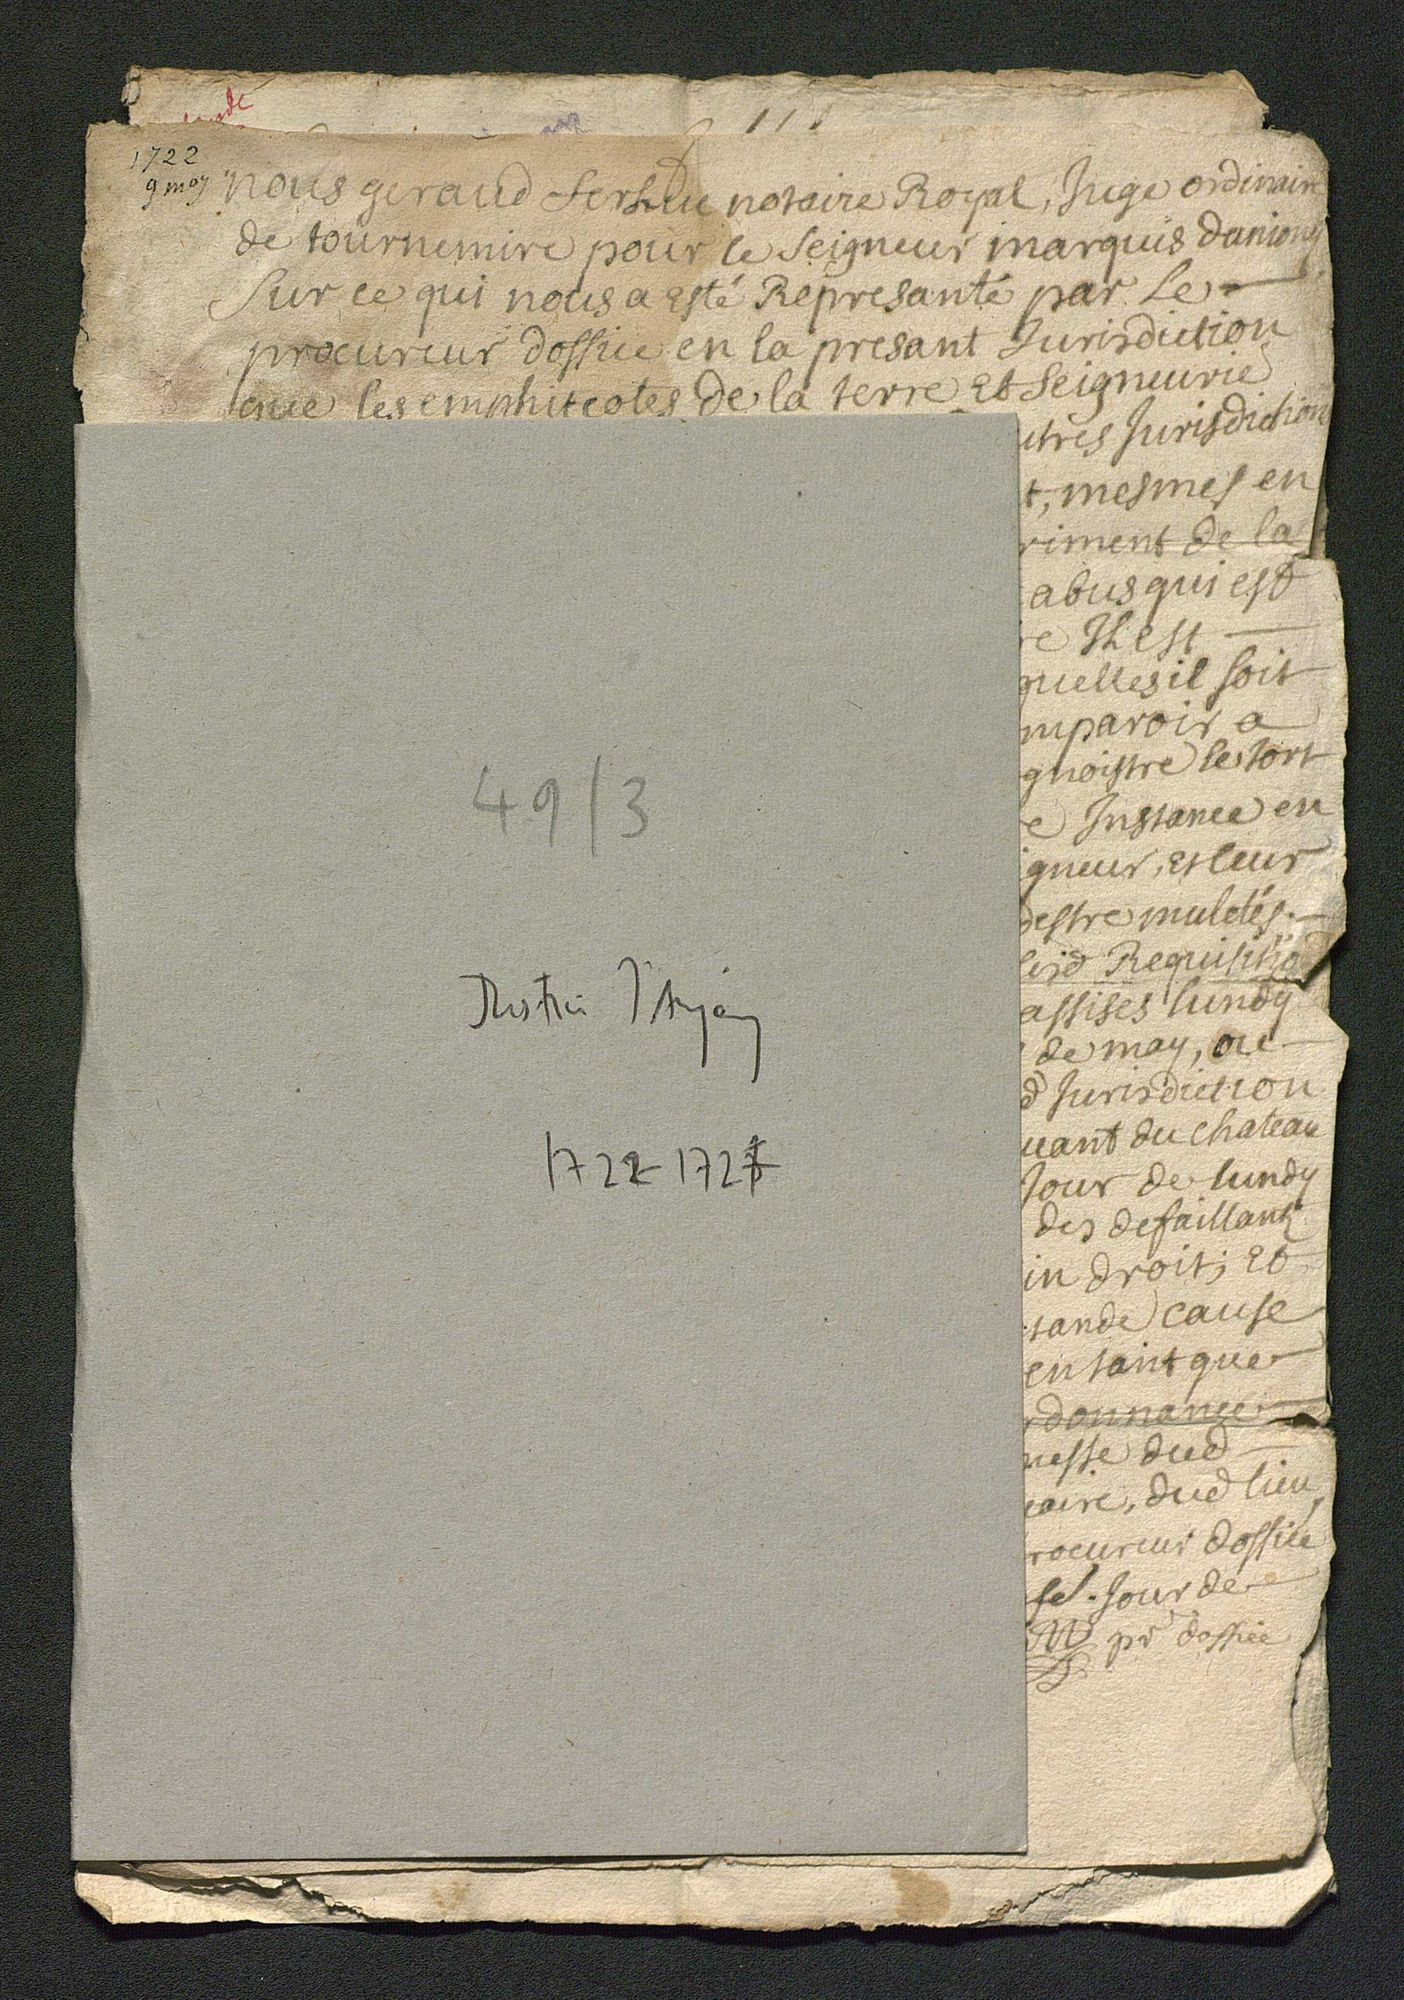 111
1722
9 may
nous geraud notaire Royal, Juge ordinaire
de tournemire pour le Seigneur marquis danjony
Sur ce qui nous a esté Represanté par Le
procureur doffice en la presant Jurisdiction
que les emphiteotes de la terre Et Seigneurie
utres Jurisdiction
t, mesmes en
riment de la
abus qui est
re Il est
quelles il soit
mparoir a
gnoistre le tort
e Instance en
igneur, Et leur
destre muletés.
Requisitio
assises lundy
de may, ou
d Jurisdiction
uant du Chateau
Jour de lundy
des defaillants
in droit; Et
tande cause
en tant que
rdonnance
messe dud
caire, dud lieu
rocureur doffice
Jour de
pr doffice
49/3
Justice d'Anjony
1722-1727